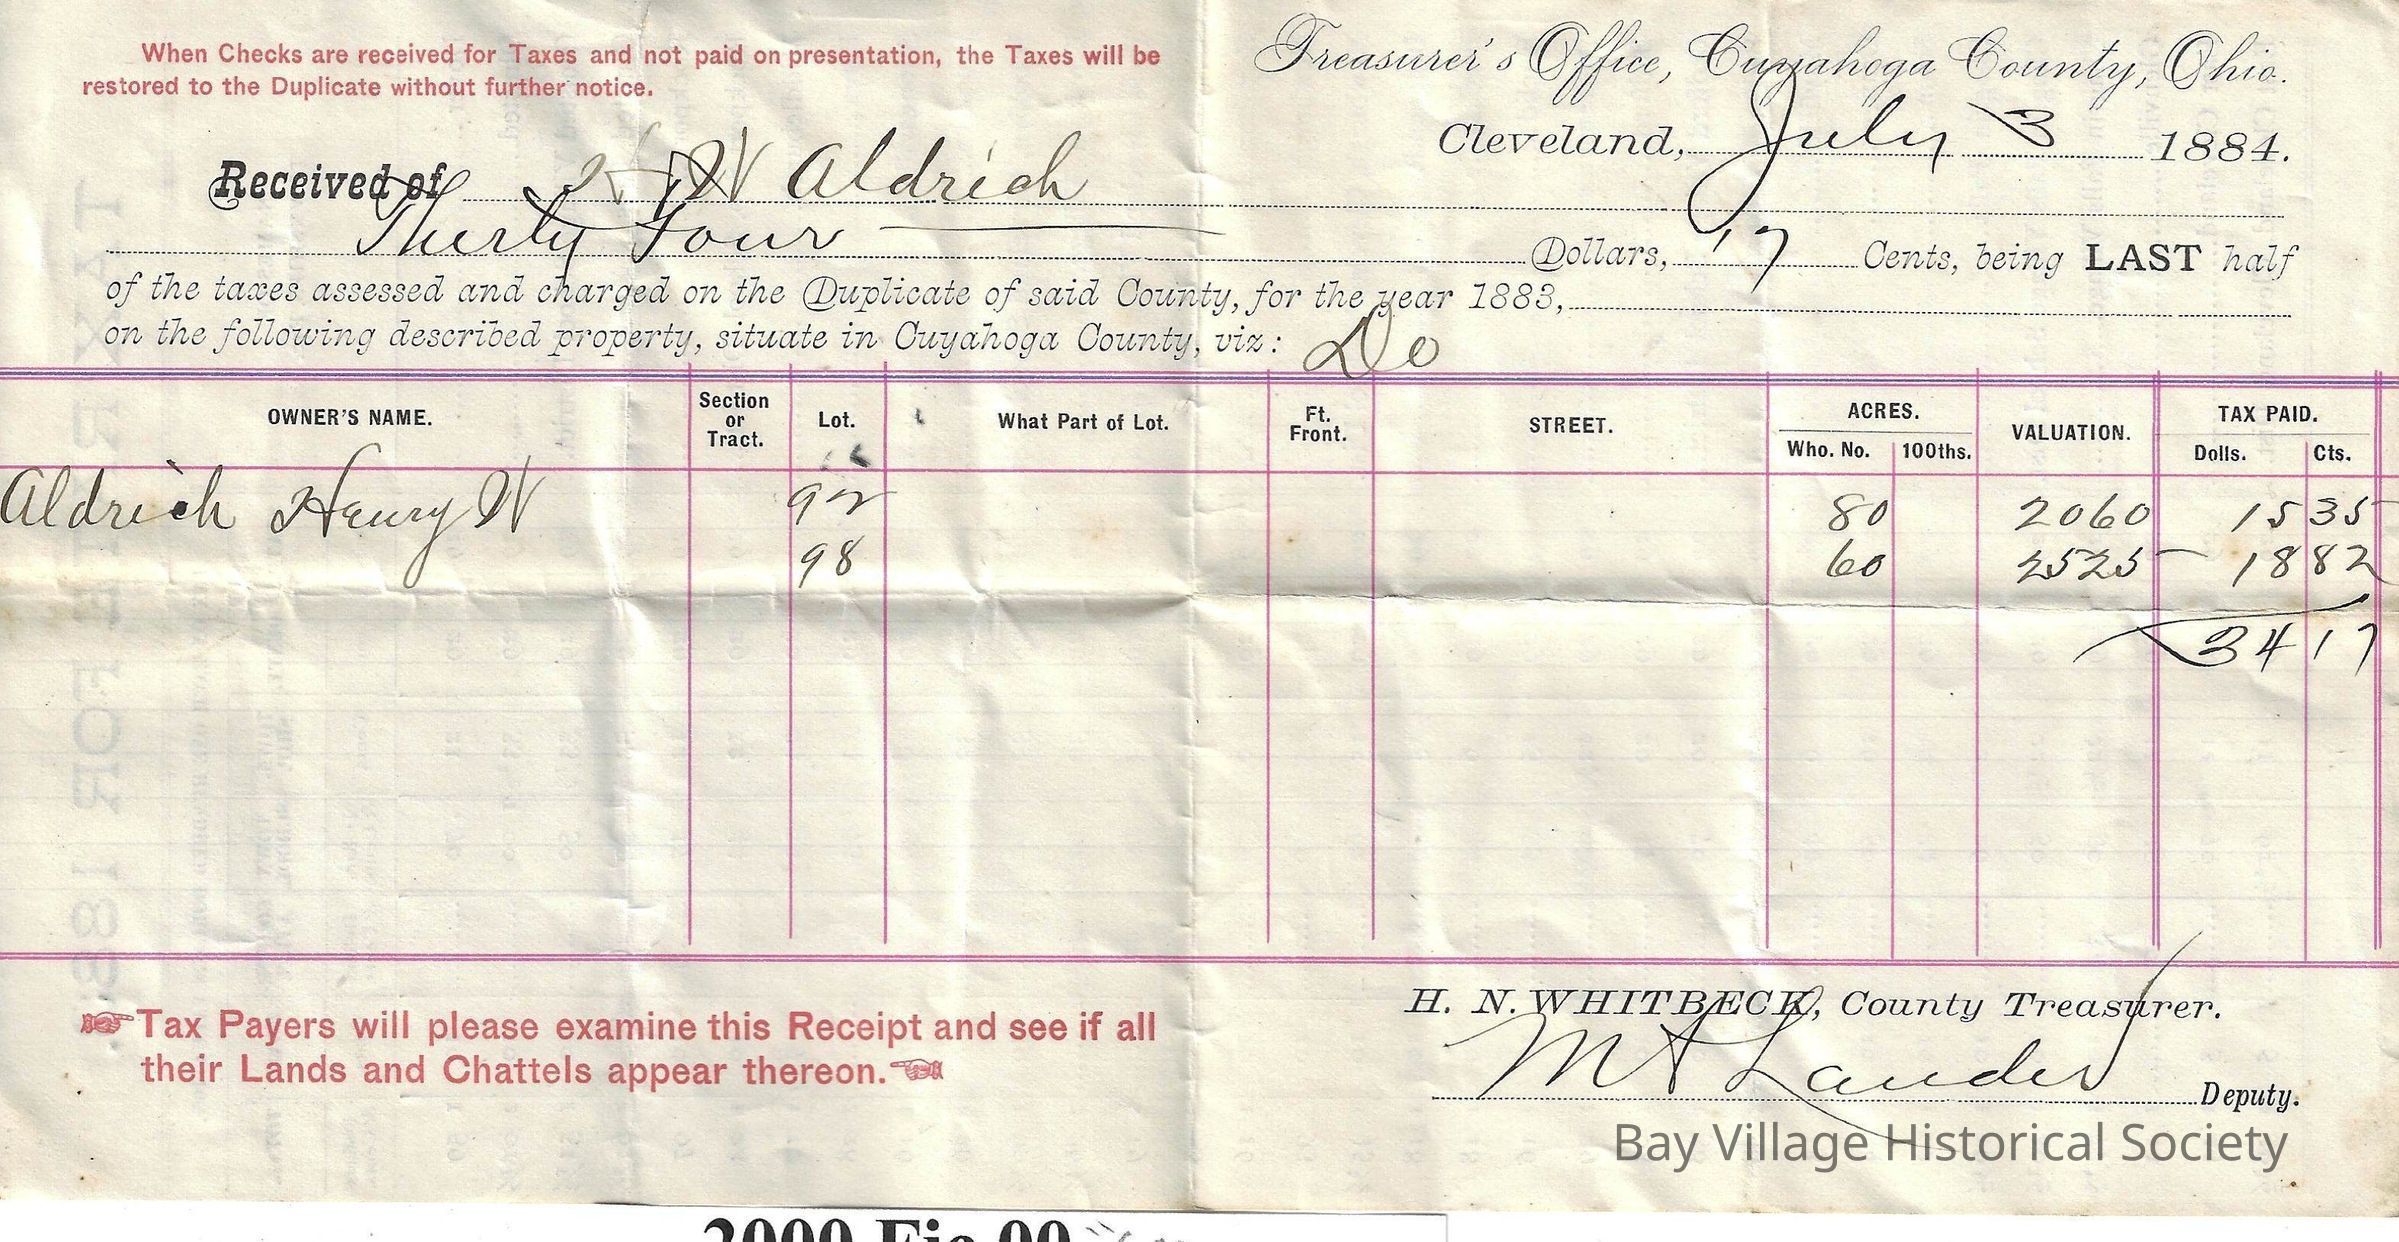 When Checks are received for Taxes and not paid on presentation, the Taxes will be
restored to the Duplicate without further notice.
Treasurer's Office, Cuyahoga County, Ohio.
Cleveland, July 3 1884.
Received of H W Aldrich
Thirty Four Dollars, 17 Cents, being LAST half
of the taxes assessed and charged on the Duplicate of said County, for the year 1883,
on the following described property, situate in Cuyahoga County, viz: Do
OWNER'S NAME. Section or Tract. Lot. What Part of Lot. Ft. Front. STREET. ACRES. Who. No. 100ths. VALUATION. TAX PAID. Dolls. Cts.
Aldrich Henry W 92 80 2060 15 35
98 60 2525 18 82
34 17
Tax Payers will please examine this Receipt and see if all
their Lands and Chattels appear thereon.
H. N. WHITBECK, County Treasurer.
M A Lander Deputy.
Bay Village Historical Society